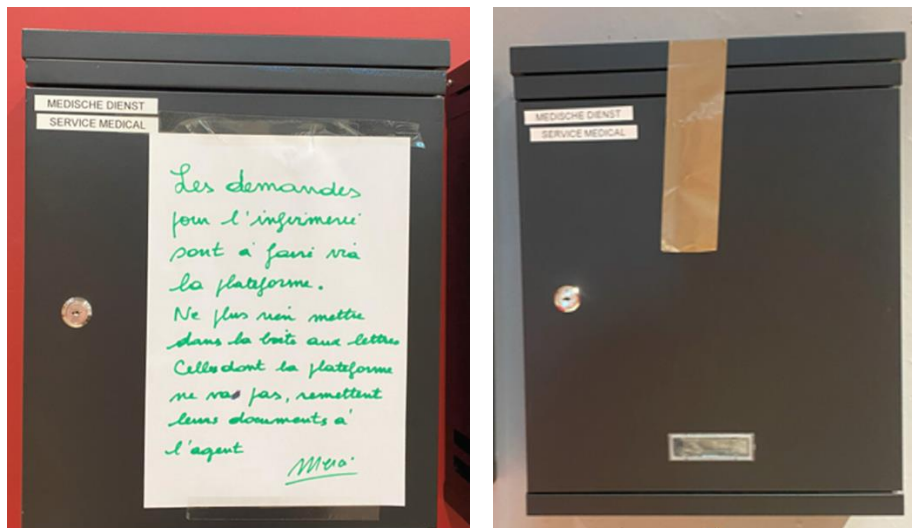 MEDISCHE DIENST
SERVICE MEDICAL
Les demandes
pour l'infirmerie
sont à faire via
la plateforme.
Ne plus rien mettre
dans la boite aux lettres
Celles dont la plateforme
ne va pas, remettent
leurs documents à
l'agent
Merci
MEDISCHE DIENST
SERVICE MEDICAL